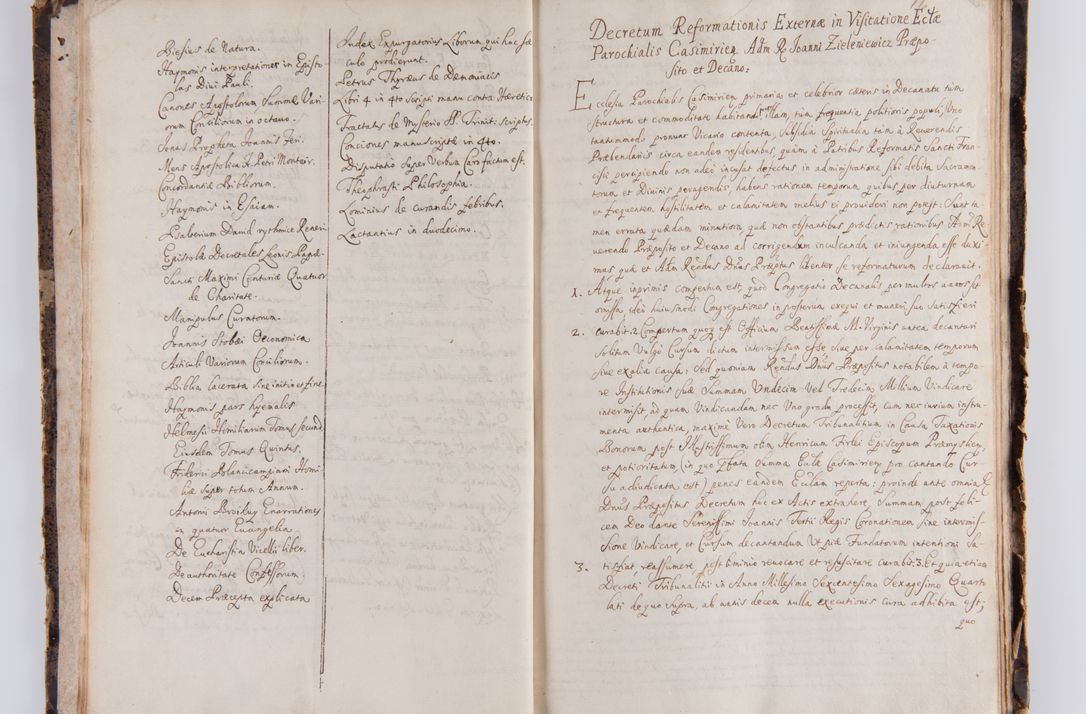 Biesius de Natura.
Haymonis interpretationes in Episto-
las Divi Pauli.
Canones Apostolorum Summæ Vari-
orum Conciliorum in octavo.
Jonas Propheta Joannis Feri.
Mons Apostolica X. Petri
Concordantiæ Bibliorum.
Haymonis in Esaiam.
Psalterium David rythmice
Epistolæ Decretales Leonis Papæ.
Sancti Maximi Centuriæ Quatuor
de Charitate.
Manipulus Curatorum.
Joannis Stobei Oeconomica
Articuli Variorum Conciliorum.
Biblia lacerata sine initio et fine
Haymonis pars hyemalis
Helmesii Homiliarum Tomus secund9
Eiusdem Tomus Quintus.
Friderici Homi-
liæ super totum Annum.
Antoni Broikuy Enarrationes
in quatuor Euangelia
De Eucharistia Vicelii liber.
De authoritate Confessorum.
Decem Præcepta explicata
Index Expurgatorius Librorum qui hoc sæ-
culo prodierunt.
Petrus Thyræus de Dæmoniacis
Libri 4 in 4to scripti manu contra Hæretic:
Tractatus de Mysterio SS. Trinit: scriptus.
Conciones manuscriptæ in 4to.
Disputatio super Verbum Caro factum est.
Theophrasti Philosophia.
Lominius de curandis febribus.
Lactantius in duodecimo.
Decretum Reformationis Externæ in Visitatione Eclæ
Parochialis Casimirien Adm R Joanni Zieleniewicz Præpo-
sito et Decano:
Ecclesia Parochialis Casimirien primaria et celebrior cæteris in Decanatu tum
structura et commoditate habitandi illam, tum frequentia politioris populi, Uno
tantummodo pronunc Vicario contenta, Subsidia Spiritualia tam à Reverendis
Præbendariis circa eandem residentibus, quam à Patribus Reformatis Sancti Fran-
cisci percipiendo non adeo incusat defectus in administratione sibi debita Sacramen-
torum et Divinis peragendis, habens rationem temporum, quibus per diuturnam
et frequentem hostilitatem et calamitatem melius ei provideri non potest: Sunt ta-
men errata quædam minutiora, quæ non obstantibus prædictis rationibus Adm Re-
verendo Præposito et Decano ad corrigendum inculcanda et iniungenda esse duxi-
mus, quæ et Adm Rendus Dnus Præptus libenter se reformaturum declaravit.
1. Atque inprimis compertum est, quod Congregatio Decanalis per multos annos sit
omissa, ideo huiusmodi Congregationes in posterum exequi et muneri suo satisfieri
2. curabit. 2. Compertum quoq est Officium Beatissimæ M. Virginis antea decantari
solitum Vulgo Cursum dictum intermissum esse, sive per calamitatem temporum,
sive ex alia causa: Sed quoniam Rendus Dnus Præpositus notabilem à tempo-
re Institutionis suæ Summam Undecim Vel Tredecim Millium Vindicare
intermisit, ad quam Vindicandam nec Uno gradu processit, cum nec iurium instru-
menta authentica, maximè Vero Decretum Tribunalitium in Causa Taxationis
Bonorum post Illustrissimum olim Henricum Firlei Episcopum Præmyslien,
et potioritatum, (in quo præfata Summa Eclæ Casimirien pro cantando Cur-
su adiudicata est) penes eandem Eclam reperta: proinde ante omnia R
Dnus Præpositus Decretum hoc ex Actis extrahere, Summam, post feli-
cem Deo dante Serenissimi Joannis Tertii Regis Coronationem sine intermis-
sione Vindicare, et Cursum decantandum Ut piæ Fundatorum intentioni sa-
3. tisfiat reassumere, postliminio revocare et resuscitare curabit. 3. Et quia etiam
Decreti Tribunalitii in Anno Millesimo Sexcentesimo Sexagesimo Quarto
lati de quo supra, ab annis decem nulla executionis cura adhibita est;
quo